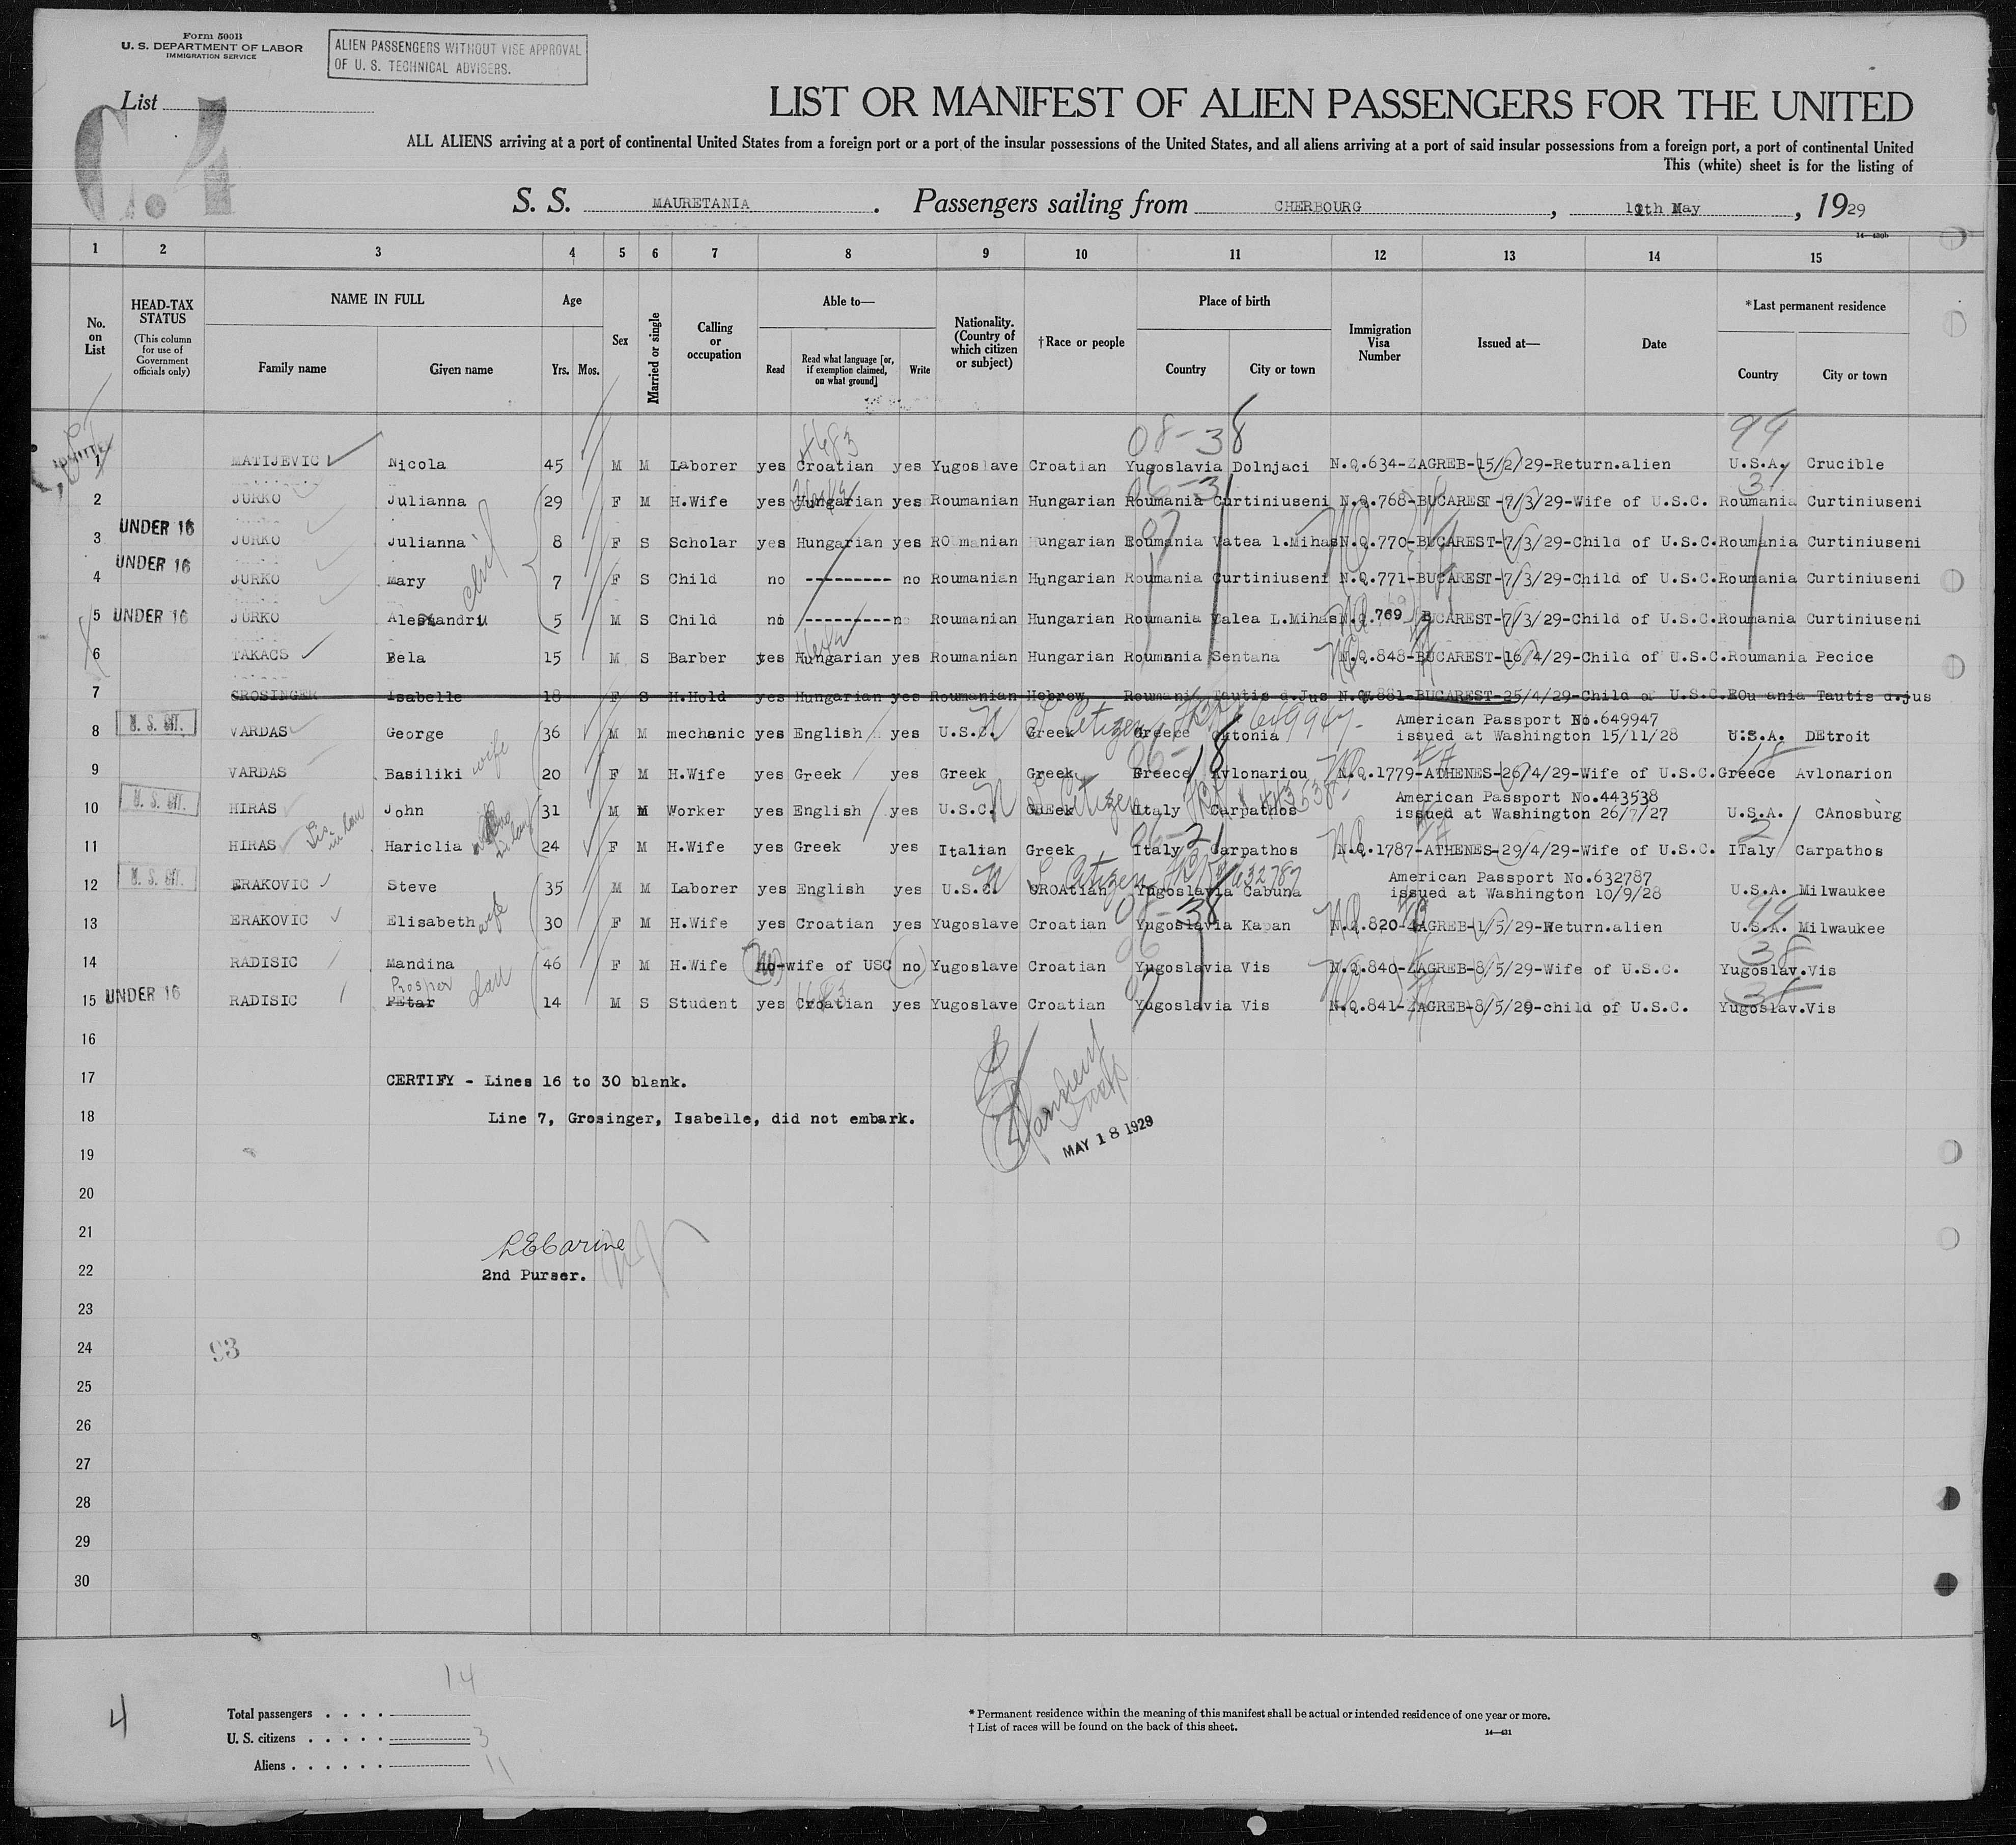 Form 500B
U. S. DEPARTMENT OF LABOR
IMMIGRATION SERVICE
ALIEN PASSENGERS WITHOUT VISE APPROVAL
OF U. S. TECHNICAL ADVISERS.
List
C.4
LIST OR MANIFEST OF ALIEN PASSENGERS FOR THE UNITED
ALL ALIENS arriving at a port of continental United States from a foreign port or a port of the insular possessions of the United States, and all aliens arriving at a port of said insular possessions from a foreign port, a port of continental United
This (white) sheet is for the listing of
S. S. MAURETANIA. Passengers sailing from CHERBOURG, May, 1929
14—430b
1 2 3 4 5 6 7 8 9 10 11 12 13 14 15
No. on List
HEAD-TAX STATUS (This column for use of Government officials only)
NAME IN FULL Family name Given name
Age Yrs. Mos.
Sex
Married or single
Calling or occupation
Able to— Read Read what language [or, if exemption claimed, on what ground] Write
Nationality. (Country of which citizen or subject)
†Race or people
Place of birth Country City or town
Immigration Visa Number
Issued at—
Date
*Last permanent residence Country City or town
08-38 99
1 ADMITTED MATIJEVIC Nicola 45 M M Laborer yes Croatian yes Yugoslave Croatian Yugoslavia Dolnjaci N.Q.634-ZAGREB-15/2/29-Return.alien U.S.A. Crucible
2 JURKO Julianna 29 F M H.Wife yes Hungarian yes Roumanian Hungarian Roumania Curtiniuseni N.Q.768-BUCAREST-7/3/29-Wife of U.S.C. Roumania Curtiniuseni
3 UNDER 16 JURKO Julianna 8 F S Scholar yes Hungarian yes ROumanian Hungarian Roumania Vatea l.Mihas N.Q.770-BUCAREST-7/3/29-Child of U.S.C. Roumania Curtiniuseni
4 UNDER 16 JURKO Mary 7 F S Child no ---------- no Roumanian Hungarian Roumania Curtiniuseni N.Q.771-BUCAREST-7/3/29-Child of U.S.C. Roumania Curtiniuseni
5 UNDER 16 JURKO Alexandru 5 M S Child no ---------- no Roumanian Hungarian Roumania Valea L.Mihas N.Q.769 BUCAREST-7/3/29-Child of U.S.C. Roumania Curtiniuseni
6 TAKACS Bela 15 M S Barber yes Hungarian yes Roumanian Hungarian Roumania Sentana N.Q.848-BUCAREST-16/4/29-Child of U.S.C. Roumania Pecice
7 GROSINGER Isabelle 18 F S H.Hold yes Hungarian yes Roumanian Hebrew Roumani Tautis d.Jus N.Q.881-BUCAREST-25/4/29-Child of U.S.C. ROu ania Tautis d.jus
8 U. S. Cit. VARDAS George 36 M M mechanic yes English yes U.S.C. Greek Greece Gatonia American Passport No.649947 issued at Washington 15/11/28 U.S.A. DEtroit
9 VARDAS Basiliki wife 20 F M H.Wife yes Greek yes Greek Greek Greece Avlonariou N.Q.1779-ATHENES-26/4/29-Wife of U.S.C. Greece Avlonarion
10 U. S. Cit. HIRAS John 31 M M Worker yes English yes U.S.C. GREek Italy Carpathos American Passport No.443538 issued at Washington 26/7/27 U.S.A. CAnosburg
11 HIRAS Sis in law Hariclia 24 F M H.Wife yes Greek yes Italian Greek Italy Carpathos N.Q.1787-ATHENES-29/4/29-Wife of U.S.C. ITaly Carpathos
12 U. S. Cit. ERAKOVIC Steve 35 M M Laborer yes English yes U.S.C. CROAtian Yugoslavia Cabuna American Passport No.632787 issued at Washington 10/9/28 U.S.A. Milwaukee
13 ERAKOVIC Elisabeth wife 30 F M H.Wife yes Croatian yes Yugoslave Croatian Yugoslavia Kapan N.Q.820-ZAGREB-1/5/29-Return.alien U.S.A. Milwaukee
14 RADISIC Mandina 46 F M H.Wife no-wife of USC no Yugoslave Croatian Yugoslavia Vis N.Q.840-ZAGREB-8/5/29-Wife of U.S.C. Yugoslav. Vis
Prosper
15 UNDER 16 RADISIC Petar 14 M S Student yes Croatian yes Yugoslave Croatian Yugoslavia Vis N.Q.841-ZAGREB-8/5/29-child of U.S.C. Yugoslav. Vis
16
17 CERTIFY - Lines 16 to 30 blank.
18 Line 7, Grosinger, Isabelle, did not embark.
MAY 18 1929
19
20
21
22 2nd Purser.
23
24 93
25
26
27
28
29
30
14
4
Total passengers . . . .
U. S. citizens . . . . . 3
Aliens . . . . . . 11
* Permanent residence within the meaning of this manifest shall be actual or intended residence of one year or more.
† List of races will be found on the back of this sheet.
14—431